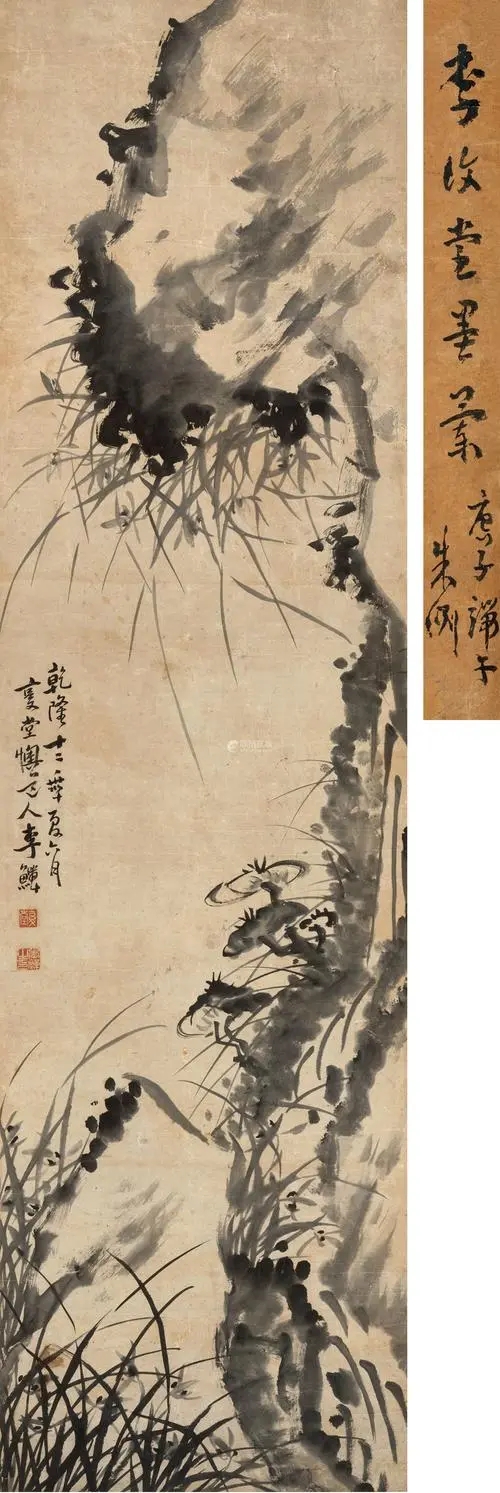 乾隆十二年夏六月
复堂懊道人李鱓
李復堂墨蘭
庚子端午
朱